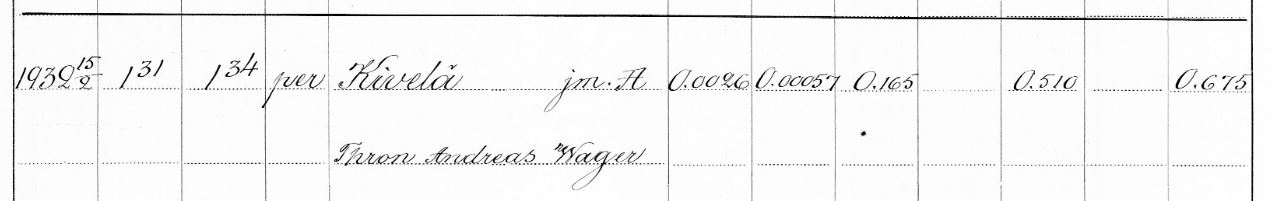 1932 15/2 1 31 1 34 per Kivelä jm. A 0.0026 0.00057 0.165 0.510 0.675
Thron Andreas Wager